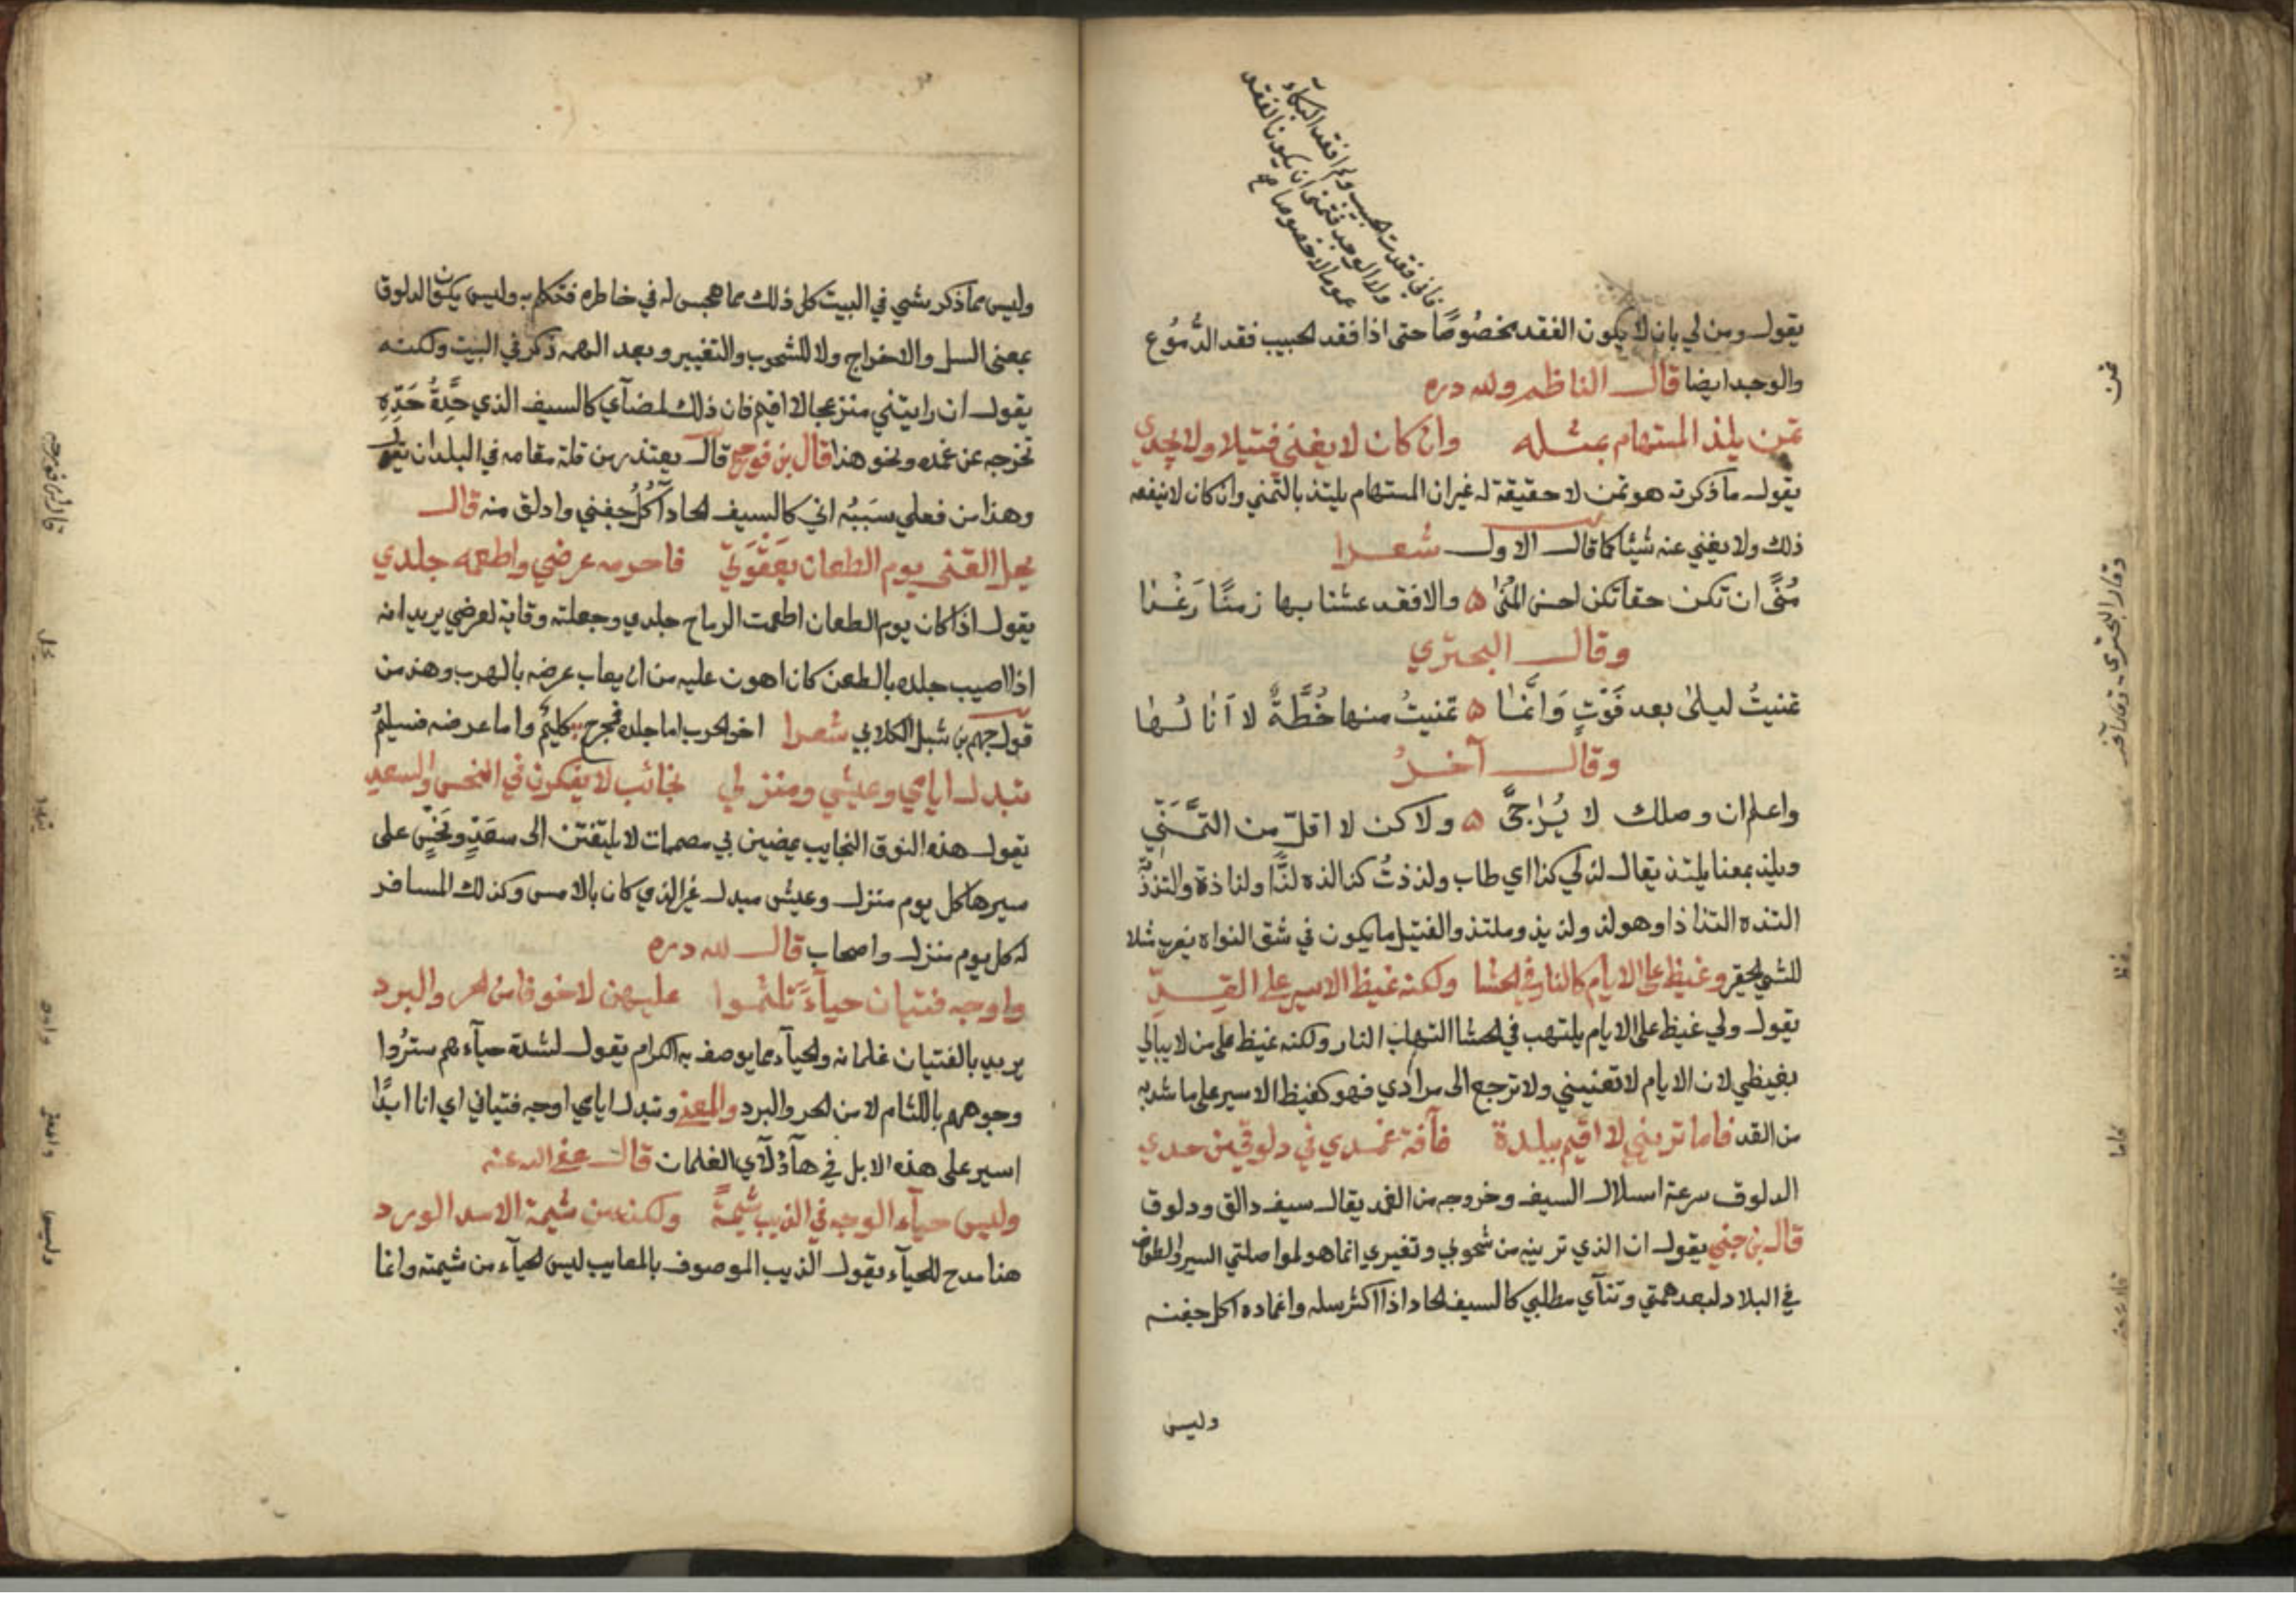 فاني فقدت الحبيب ولم افقد البكاء
ولا الوجد فتمنى ان يكون الفقد
عموما لا خصوصا صح
يقول ومن لي بان لا يكون الفقد مخصُوصًا حتى اذا فقد الحبيب فقد الدُّمُوع
والوجد ايضا قال الناظم ولله دره
تمن يلذ المستهام بمثله وان كان لا يغني فتيلا ولا يجدي
يقول ما ذكرته هو تمن لا حقيقة له غير ان المستهام يلتذ بالتمني وان كان لا ينفعه
ذلك ولا يغني عنه شيئا كما قال الاول شعرا
مُنىً ان تكن حقا تكن احسن المُنىٰ ه والا فقد عشنا بها زمنًا رَغْدا
وقال البحتري
تمنيتُ ليلىٰ بعد فَوْتٍ وَانَّمَٰا ه تمنيتُ منها خُطَّةٌ لا اَنٰا لُهٰا
وقال آخرُ
واعلم ان وصلك لا يُرٰجىَّ ه ولاكن لا اقلّ من التَّمَنّيِ
ويلذ بمعنا يلتذ يقال لذ لي كذا اي طاب ولذذتُ كذا الذه لذًّا ولذاذة والتذذُّ
التذه التذاذا وهو لذ ولذيذ وملتذ والفتيل ما يكون في شق النواه يضرب مثلا
للشي الحقير وغيظ على الايام كالنار في الحشا ولكنه غيظ الاسير على القدِّ
يقول ولي غيظ على الايام يلتهب في الحشا التهاب النار ولكنه غيظ على من لا يبالي
بغيظي لان الايام لا تعتبني ولا ترجع الى مرادي فهو كغيظ الاسير على ما شد به
من القد فاما تريني لا اقيم ببلدة فآفة غمدي في دلوقي من حدي
الدلوق سرعة انسلال السيف وخروجه من الغمد يقال سيف دالق ودلوق
قال بن جني يقول ان الذي ترينه من شحوبي وتغيري انما هو لمواصلتي السير والطواف
في البلاد لبعد همتي وتنآي مطلبي كالسيف الحاد اذا اكثر سله واغماده اكل جفنه
وليس
تمن
وقال البحتري وقال آخر
وغيظ
فاما
قال بن جني
وليس مما ذكر بشي في البيت كل ذلك مما هجس له في خاطره فتكلم به وليس يكون الدلوق
بمعنى السل والاخراج ولا للشحوب والتغيير وبعد الهمه ذكر في البيت ولكنه
يقول ان رايتني منزعجا لا اقيم فان ذلك لمضآي كالسيف الذي حِدَّةُ حَدِّهِ
تخرجه عن غمده ونحو هذا قال بن فورجه قال يعتذر من قلة مقامه في البلدان يقول
وهذا من فعلي سَبَبُه اني كالسيف الحاد آكُلُ جفني وادلق منه قال
يحل القنى يوم الطعان بعَقْوَتي فاحرمه عرضي واطعمه جلدي
يقول اذا كان يوم الطعان اطعمت الرماح جلدي وجعلته وقاية لعرضي يريد انه
اذا اصيب جلده بالطعن كان اهون عليه من ان يعاب عرضه بالهرب وهذ من
قول جهم بن شبل الكلابي شعرا اخو الحرب اما جلده فمجرح كليمٌ واما عرضه فسليمُ
تبدل ايامي وعيشي ومنزلي نجائب لا يفكرن في النحس والسعد
يقول هذه النوق النجايب يمضين بي مصممات لا يلتفتن الى سعَدٍ ونحَسٍ على
سيرها كل يوم منزل وعيش مبدل غير الذي كان بالامس وكذلك المسافر
له كل يوم منزل واصحاب قال لله دره
واوجه فتيان حيآءً تلثموا عليهن لا خوفا من الحر والبرد
يريد بالفتيان غلمانه والحيآء مما يوصف به الكرام يقول لشدة حيآءهم ستَرُوا
وجوههم باللثام لا من الحر والبرد والمعنى وتبدل ايامي اوجه فتياني اي انا ابدًا
اسير على هذه الابل في هآؤلآي الغلمان قال عفى الله عنه
وليس حيآء الوجه في الذيب شيمةً ولكنه من شيمة الاسد الورد
هذا مدح للحيآء يقول الذيب الموصوف بالمعايب ليس الحيآء من شيمته وانما
قال بن فورجه
يحل
تبدل
واوجه
والمعنى
وليس